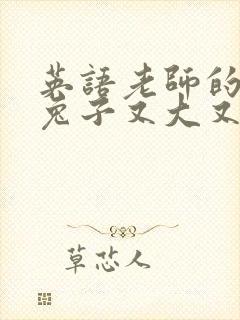 英語老師的
兔子又大又
草恋人